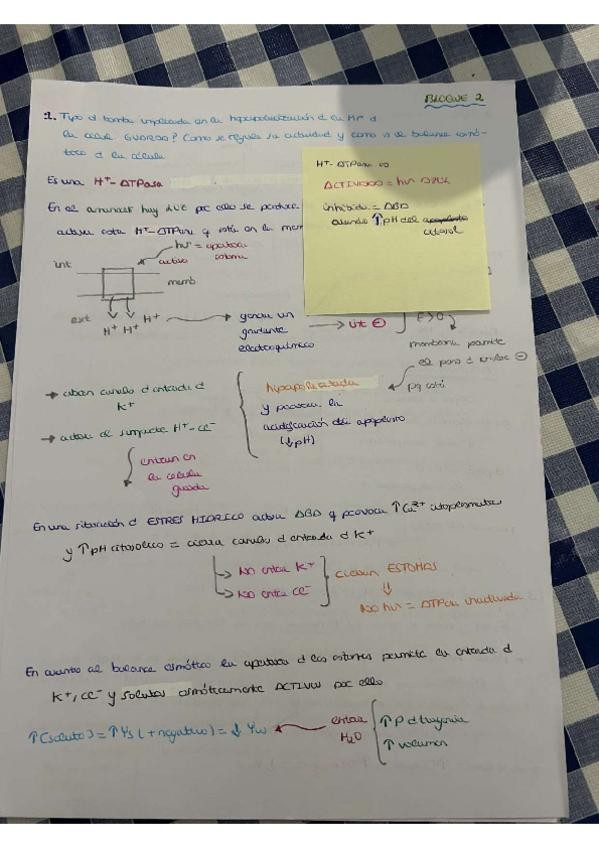 BLOQUE 2
1. Tipo d bomba implicada en la hiperpolarización d la MP d
la célula GUARDA? Como se regula su actividad y como es el balance osmó-
tico d la célula
Es una H⁺-ATPasa
En el amanecer hay LUZ por ello se produce
activa esta H⁺-ATPasa q está en la mem
H⁺-ATPasa
ACTIVADO = hν AZUL
inhibida = ABA
cuando ↑pH del
citosol
hν = apertura
activa
int
memb
ext
H⁺ H⁺ H⁺
genera un
gradiente
electroquímico
int ⊖
E>0
membrana permite
el paso d
pq está
→ abren canales d entrada d
K⁺
→ activa el simporte H⁺-Cl⁻
entran en
la célula
guarda
hiperpolarizada
y provoca la
acidificación del apoplasto
(↓pH)
En una situación d ESTRES HIDRICO activa ABA q provoca ↑Ca²⁺ citoplasmático
y ↑pH citosólico = cierra canales d entrada d K⁺
→ NO entra K⁺
→ NO entra Cl⁻
CIERRAN ESTOMAS
⇓
NO hν = ATPasa inactivada
En cuanto al balance osmótico la apertura d los estomas permite la entrada d
K⁺, Cl⁻ y solutos osmóticamente ACTIVOS por ello
↑(soluto) = ↑Ψs (+ negativo) = ↓Ψw
entra
H₂O
↑P d turgencia
↑volumen